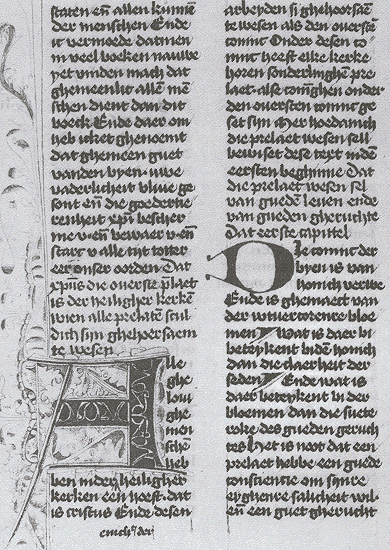 staten en̄ allen kunnē
der menschen Ende
it vermoede datmen
in veel boeken nauwe
yet vinden mach dat
ghemeenlic allē mē
schen dient dan dit
boeck Ende daer om
heb icket ghenoemt
dat ghemeen guet
vanden byen uwe
vaderlicheit blive ge
sont en̄ die goedertie
renheit xp̄i bescher
me v en̄ bewaer v en̄
start v alle tijt totter
eer onser oorden Dat
xp̄us die overste p̄laet
is der heiligher kerkē
wien alle prelatē scul
dich sijn ghehoersaem
te wesen
Alle
ghe
lovi
ghe
men
schē
heb
ben inder heiligher
kerken een hoeft dat
is cristus Ende desen
arbeyden si ghehoorsā
te wesen als den overstē
coninc Onder desen co
ninc heeft elke kerke
horen sonderlinghē pre
laet alse coninghen onder
den oversten coninc ge
set sijn Mer hoedanich
die prelaet wesen sell
bewiset dese text indē
eersten beghinne Dat
die prelaet wesen sel
van gueden leven ende
van gueden gheruchte
Dat eerste capittel
Die coninc der
byen is van
honich verwe
Ende is ghemaect van
der wtvercorenre bloe
men Wat is daer bi
beteykent biden honich
dan die claerheit der
seden Ende wat is
daer beteykent bi der
bloemen dan die suete
roke des gueden geruch
tes Het is noot dat een
prelaet hebbe een guede
consciencie om sijnre
eyghenre salicheit wil
en̄ een guet gherucht